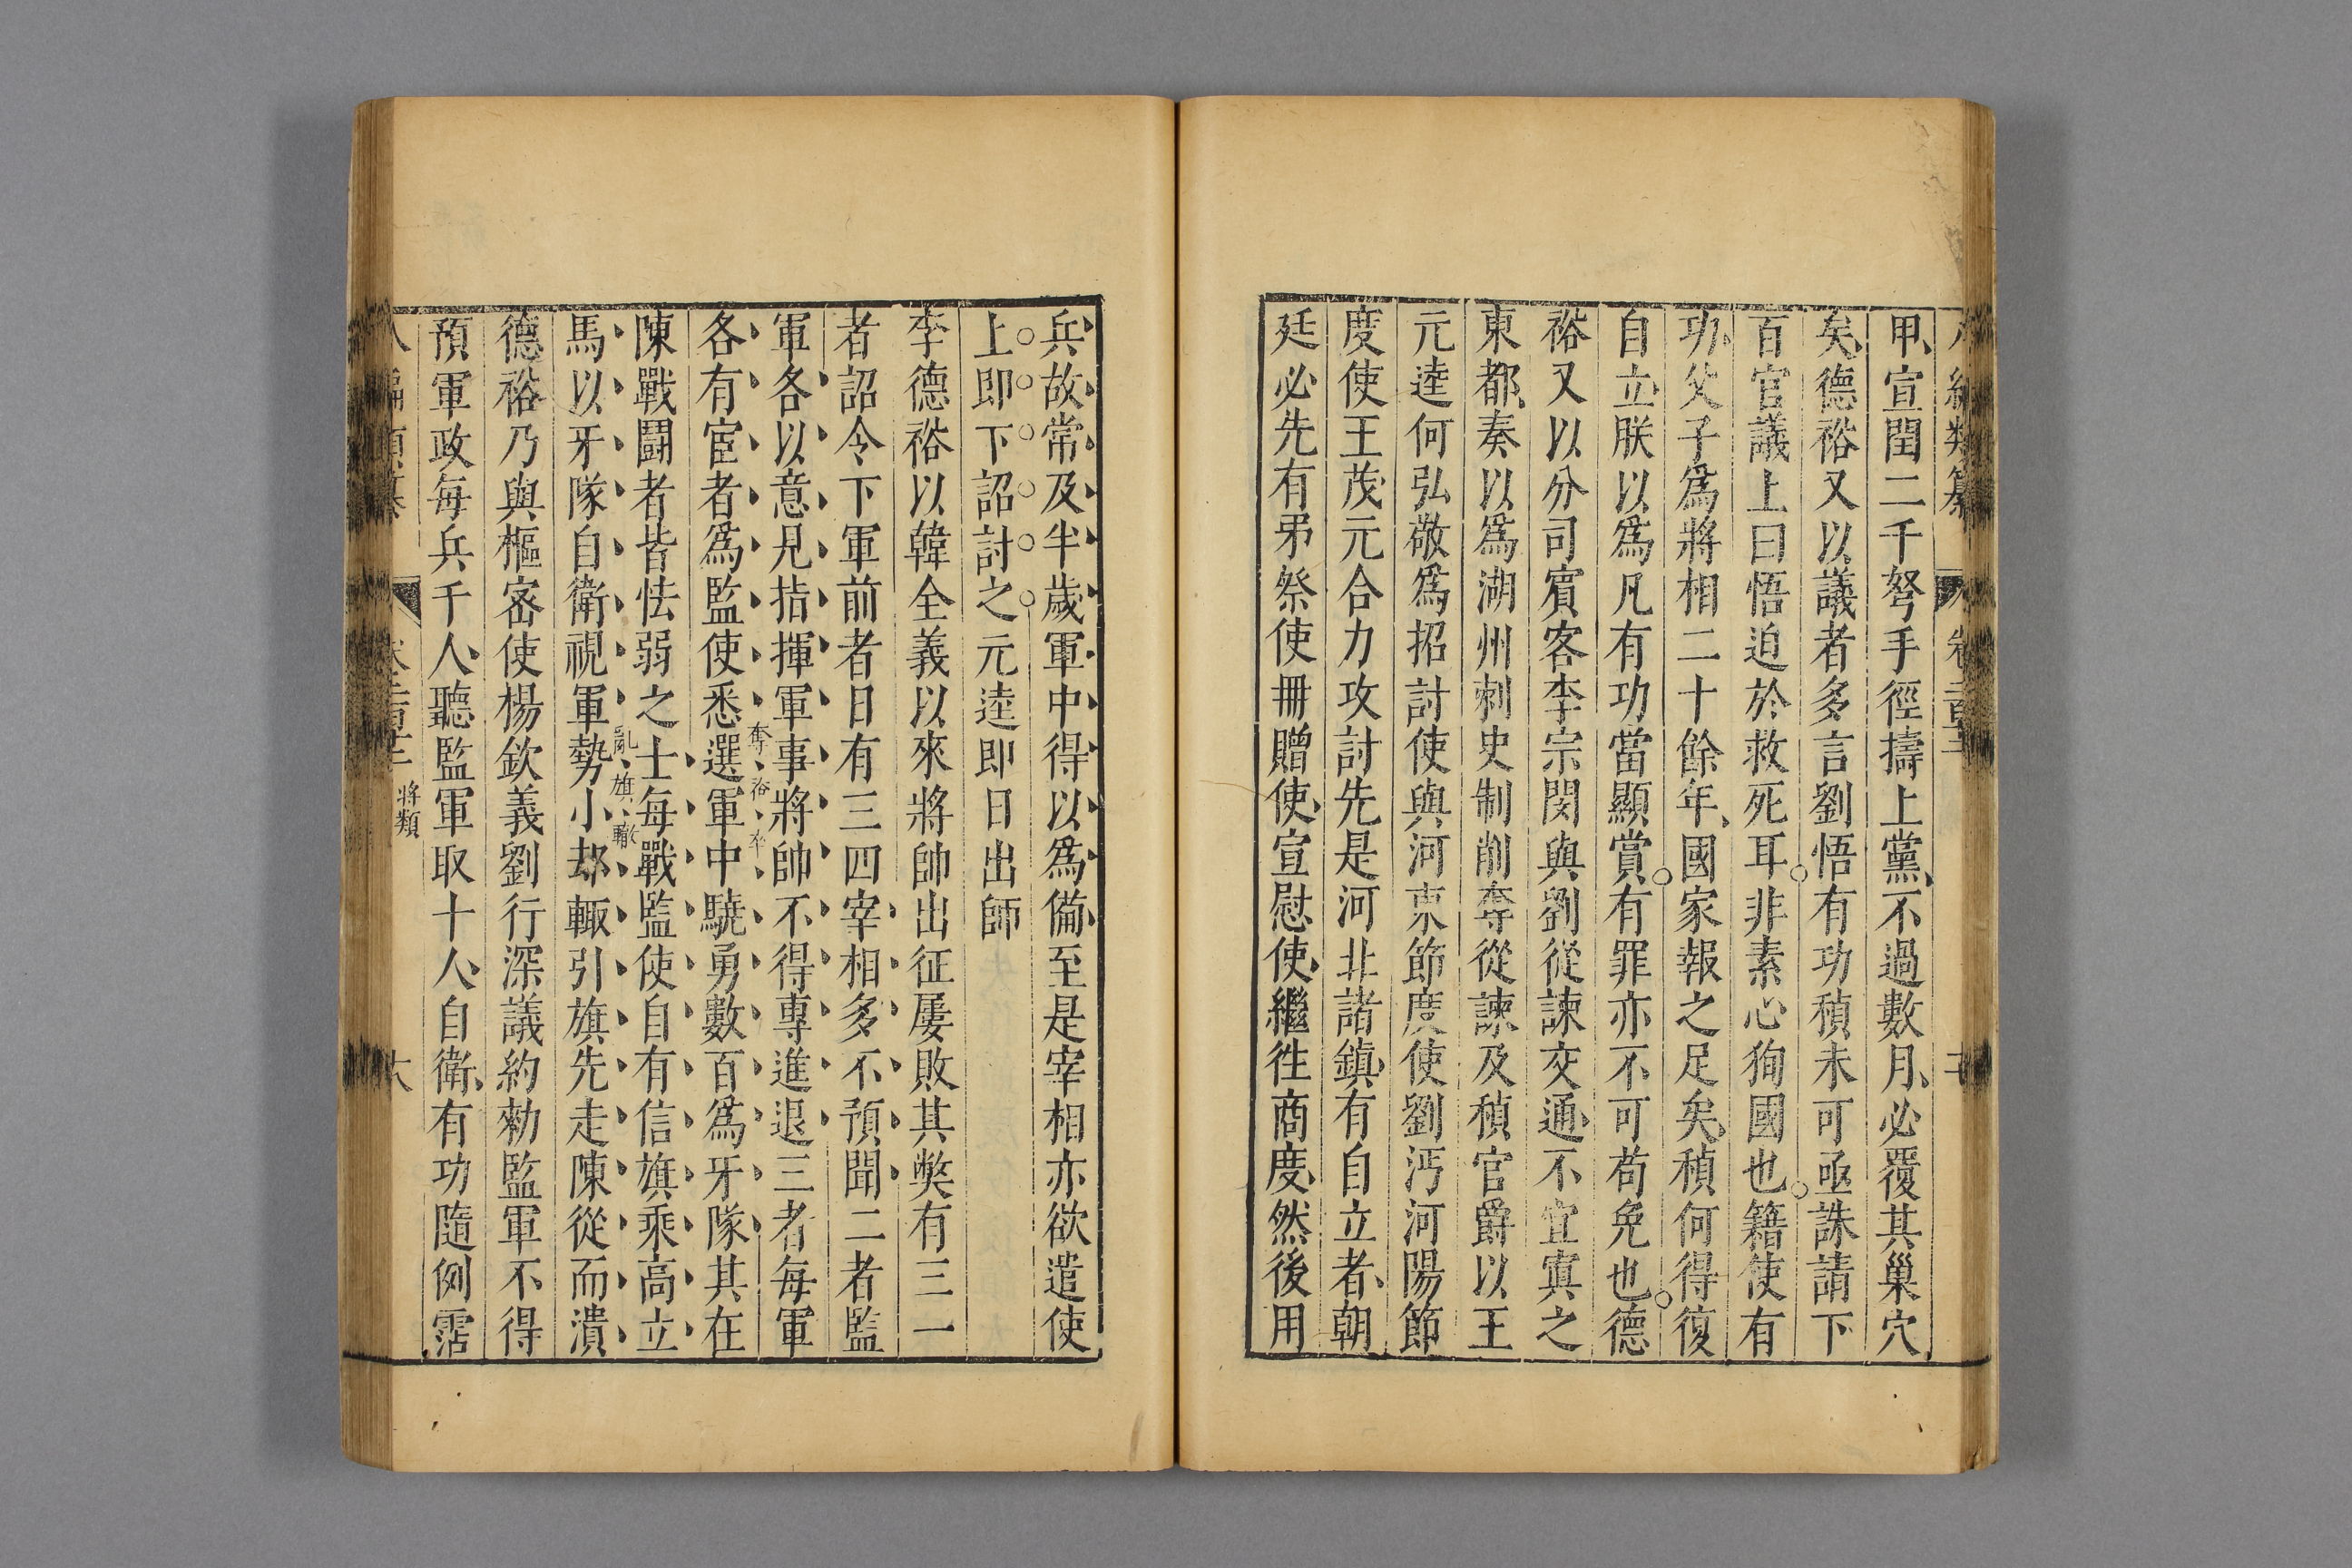 甲宣閏二千弩手徑擣上黨不過數月必覆其巢穴
矣德裕又以議者多言劉悟有功稹未可亟誅請下
百官議上曰悟迫於救死耳非素心狥國也籍使有
功父子爲將相二十餘年國家報之足矣稹何得復
自立朕以爲凡有功當顯賞有罪亦不可苟免也德
裕又以分司賓客李宗閔與劉從諫交通不宜寘之
東都奏以爲湖州刺史制削奪從諫及稹官爵以王
元逵何弘敬爲招討使與河東節度使劉沔河陽節
度使王茂元合力攻討先是河北諸鎮有自立者朝
廷必先有弔祭使冊贈使宣慰使繼徃商度然後用
兵故常及半歲軍中得以爲備至是宰相亦欲遣使
上即下詔討之元逵即日出師
李德裕以韓全義以來將帥出征屢敗其獘有三一
者詔令下軍前者日有三四宰相多不預聞二者監
軍各以意見指揮軍事將帥不得專進退三者每軍
各有宦者爲監使悉選軍中驍勇數百爲牙隊其在
陳戰鬪者皆怯弱之士每戰監使自有信旗乘高立
馬以牙隊自衛視軍勢小却輒引旗先走陳從而潰
德裕乃與樞密使楊欽義劉行深議約勑監軍不得
預軍政每兵千人聽監軍取十人自衛有功隨例霑
將類